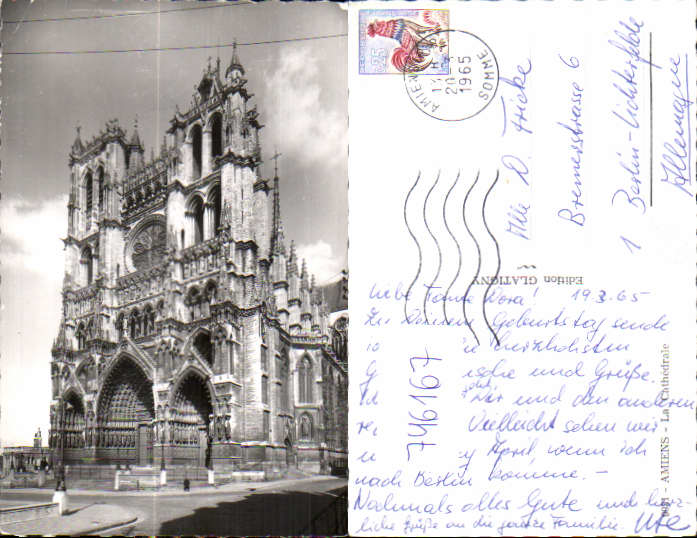 25
AMIENS
20-3
1965
SOMME
Mlle D. Fricke
Bremerstrasse 6
1 Berlin-Lichterfelde
Allemagne
Edition GLATIGNY
Liebe Tante Dora! 19.3.65
Zu Deinem Geburtstag sende
herzlichsten
und Grüße.
Dir und den anderen
Vielleicht sehen wir
April, wenn ich
nach Berlin komme. -
Nochmals alles Gute und herz-
liche Grüße an die ganze Familie. Ute
746167
AMIENS - La Cathédrale